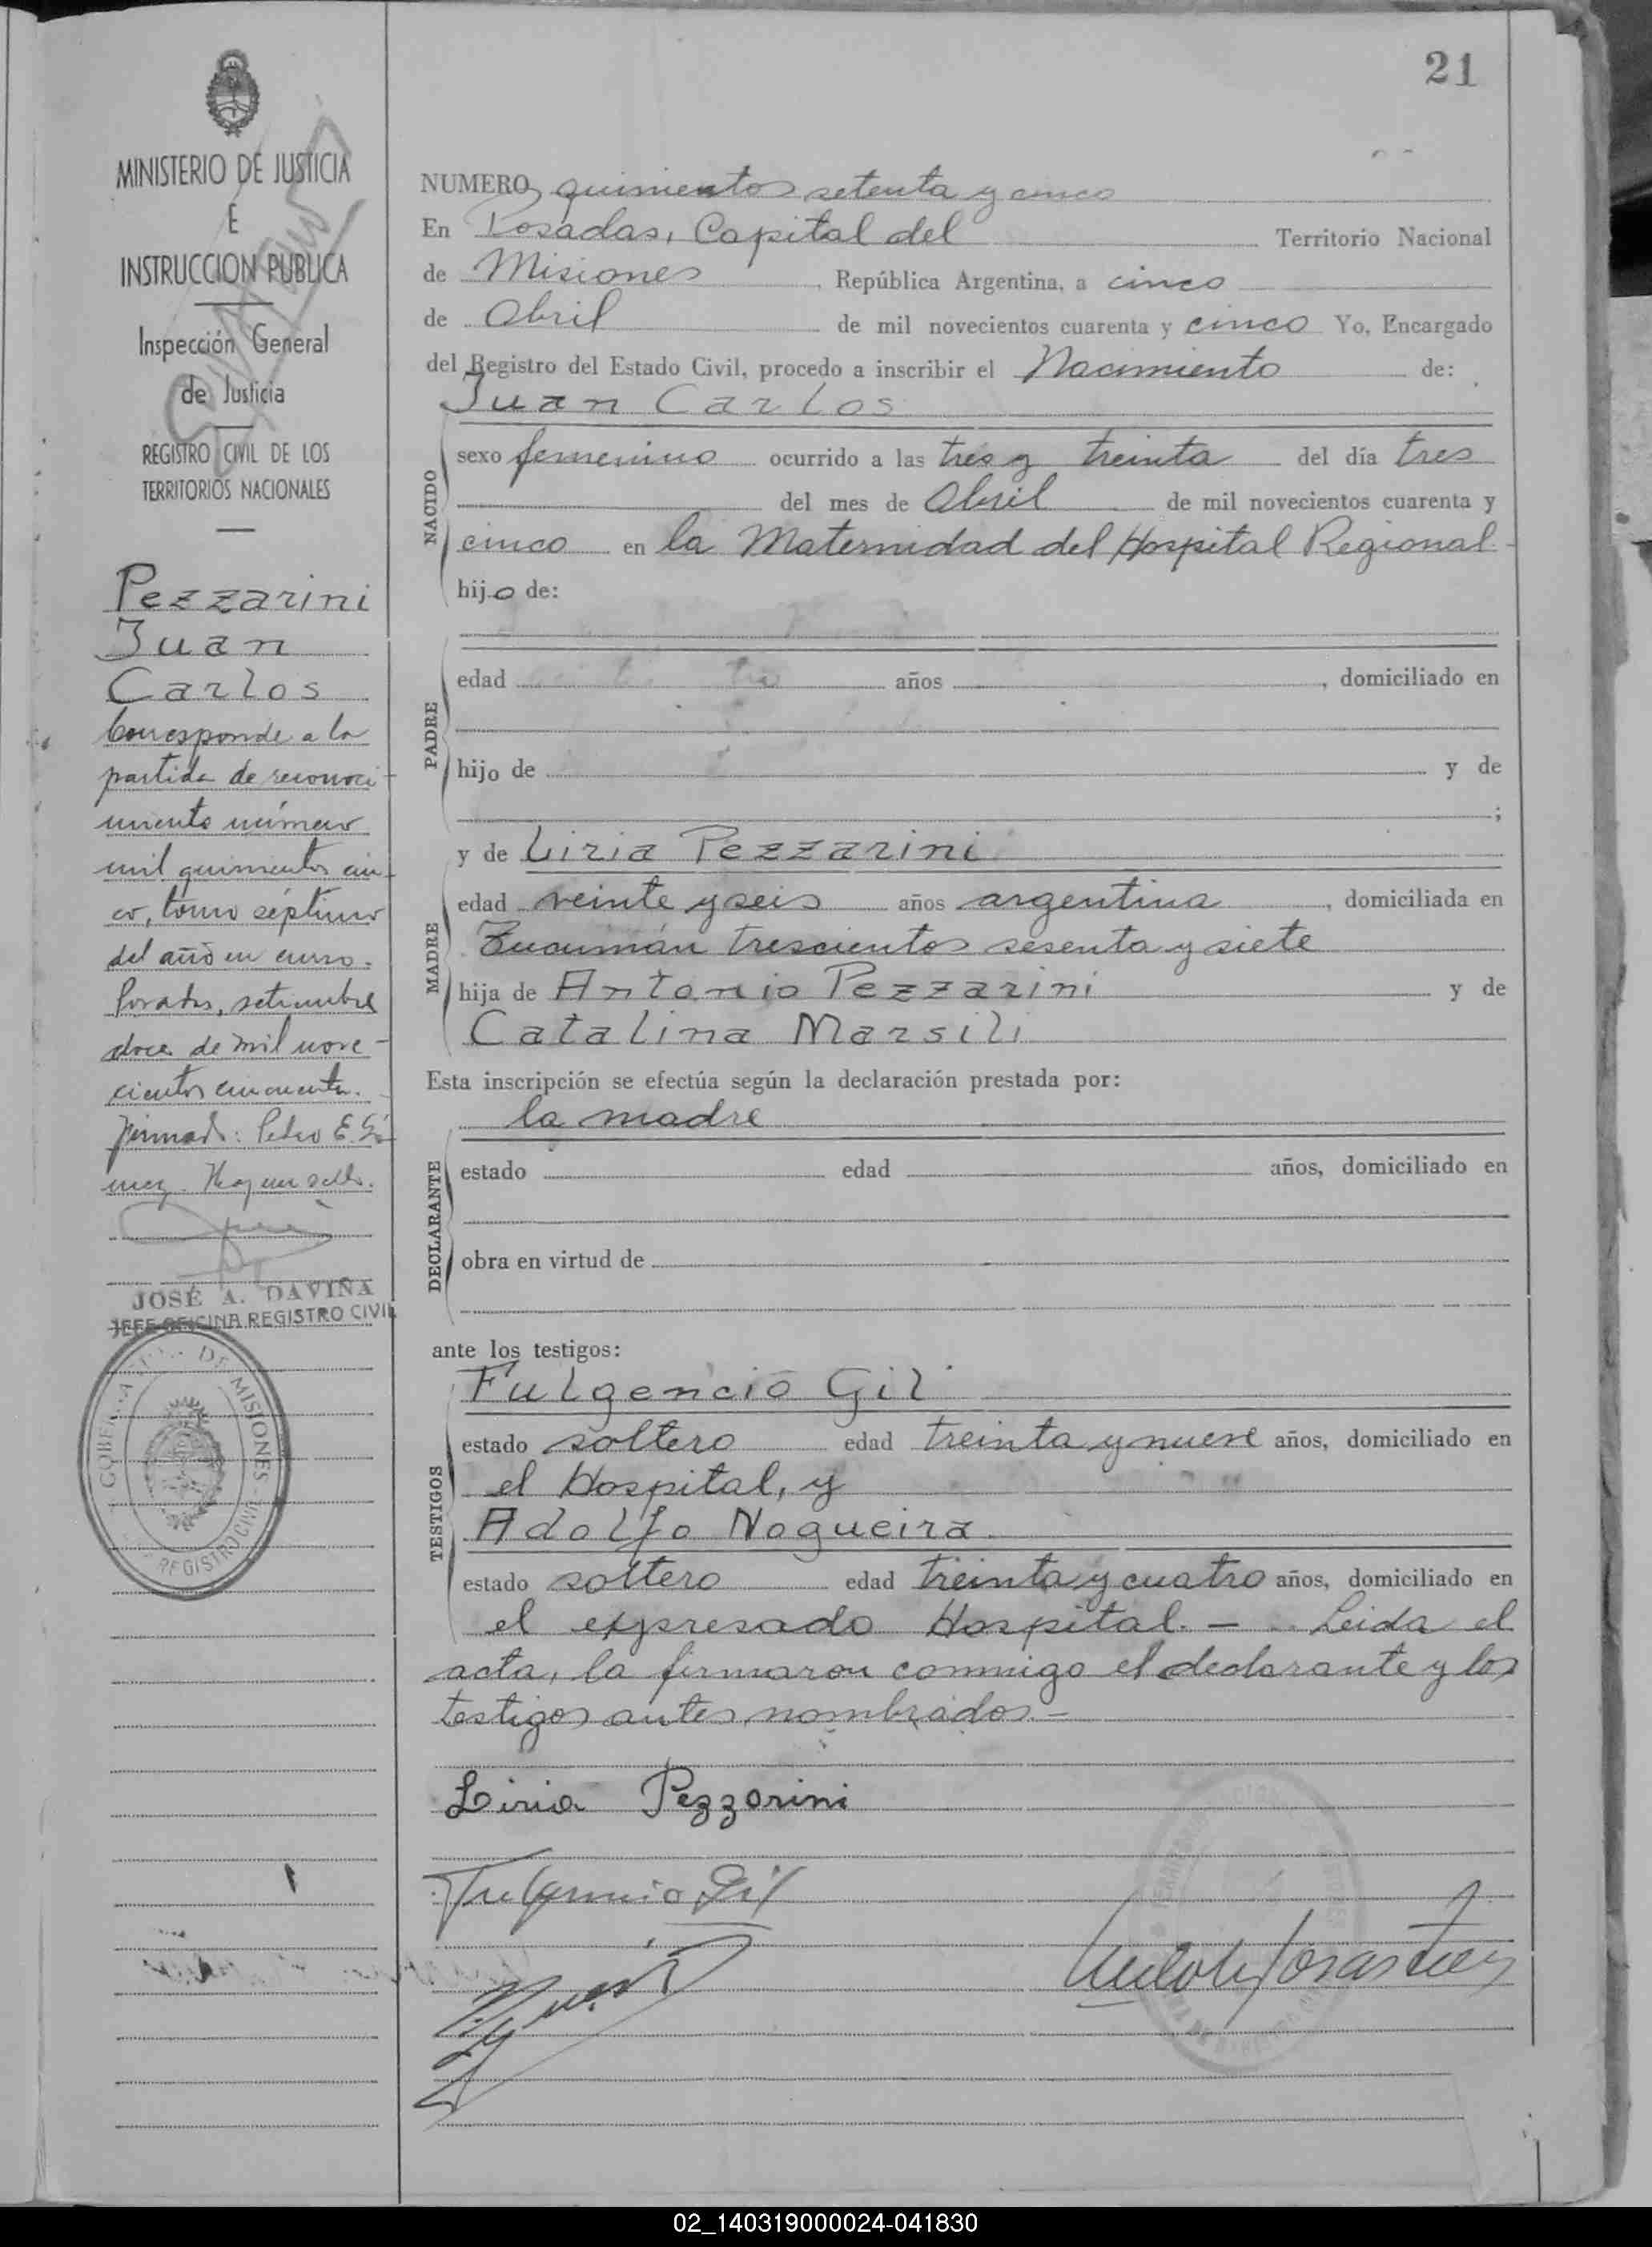 21
MINISTERIO DE JUSTICIA
E
INSTRUCCION PUBLICA
Inspección General
de Justicia
REGISTRO CIVIL DE LOS
TERRITORIOS NACIONALES
Pezzarini
Juan
Carlos
Corresponde a la
partida de reconoci-
miento número
mil quinientos cin-
co, tomo séptimo
del año en curso.
Posadas, setiembre
doce de mil nove-
cientos cincuenta.
Firmado: Pedro E. Gó-
mez. Hay un sello.
JOSÉ A. DAVIÑA
JEFE OFICINA REGISTRO CIVIL
DE MISIONES
REGISTRO CIVIL
NUMERO quinientos setenta y cinco
En Posadas, Capital del Territorio Nacional
de Misiones, República Argentina, a cinco
de Abril de mil novecientos cuarenta y cinco Yo, Encargado
del Registro del Estado Civil, procedo a inscribir el Nacimiento de:
Juan Carlos
NACIDO
sexo femenino ocurrido a las tres y treinta del día tres
del mes de Abril de mil novecientos cuarenta y
cinco en la Maternidad del Hospital Regional
hijo de:
PADRE
edad años , domiciliado en
hijo de y de
;
y de Liria Pezzarini
MADRE
edad veinte y seis años argentina, domiciliada en
Tucumán trescientos sesenta y siete
hija de Antonio Pezzarini y de
Catalina Marsili
Esta inscripción se efectúa según la declaración prestada por:
la madre
DECLARANTE
estado edad años, domiciliado en
obra en virtud de
ante los testigos:
Fulgencio Gil
TESTIGOS
estado soltero edad treinta y nueve años, domiciliado en
el Hospital, y
Adolfo Nogueira
estado soltero edad treinta y cuatro años, domiciliado en
el expresado Hospital. — Leida el
acta, la firmaron conmigo el declarante y los
testigos antes nombrados.—
Liria Pezzorini
Fulgencio Gil
02_140319000024-041830